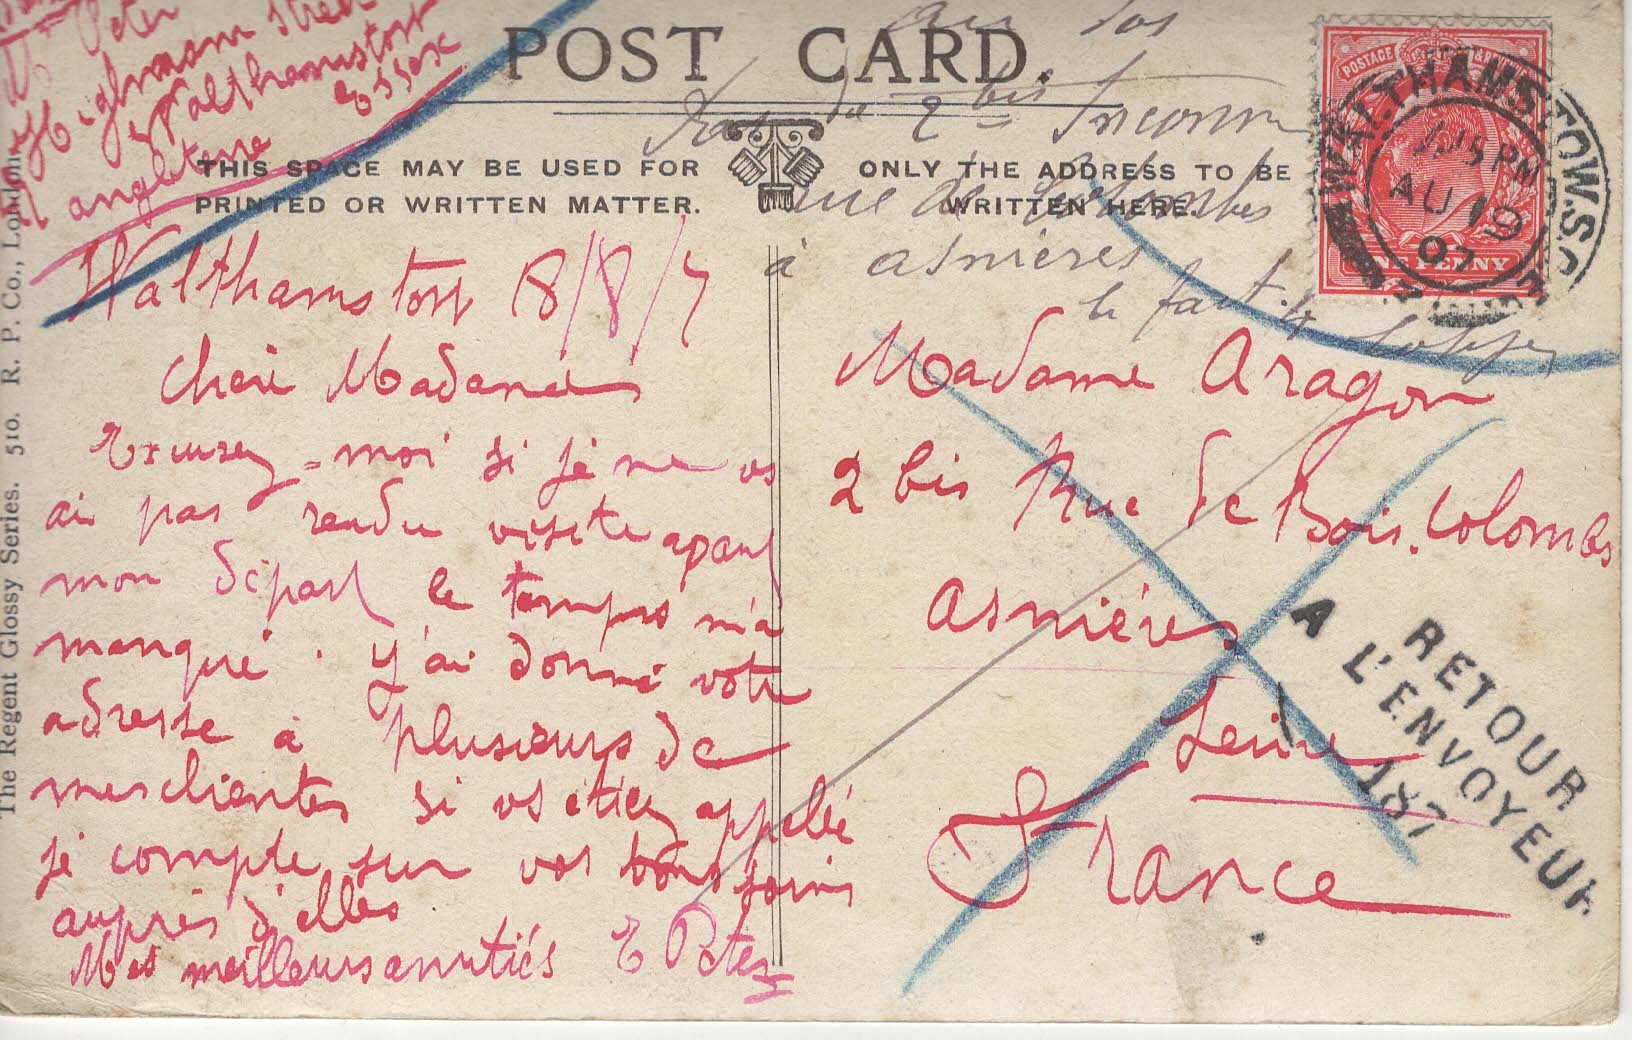 Mr Peter
Highmam Street
Walthamstow
Essex
angleterre
POST CARD.
THIS SPACE MAY BE USED FOR
PRINTED OR WRITTEN MATTER.
ONLY THE ADDRESS TO BE
WRITTEN HERE.
au dos
Pas de 2 bis Inconnu
rue de
à asnieres
le fact.
POSTAGE
ONE PENNY
WALTHAMSTOW.S.O.
PM
AU 10
07
Walthamstow 8/8/7
Chère Madame
Excusez-moi si je ne vs
ai pas rendu visite avant
mon départ le temps m'a
manqué. J'ai donné votre
adresse à plusieurs de
mes clientes si vs étiez appellé
je compte sur vos bons soins
auprès d'elles
Mes meilleurs amitiés E Peter
Madame Aragon
2 bis Rue de Bois. Colombes
Asnières
Seine
France
RETOUR
A L'ENVOYEUR
187
The Regent Glossy Series. 510. R. P. Co., London